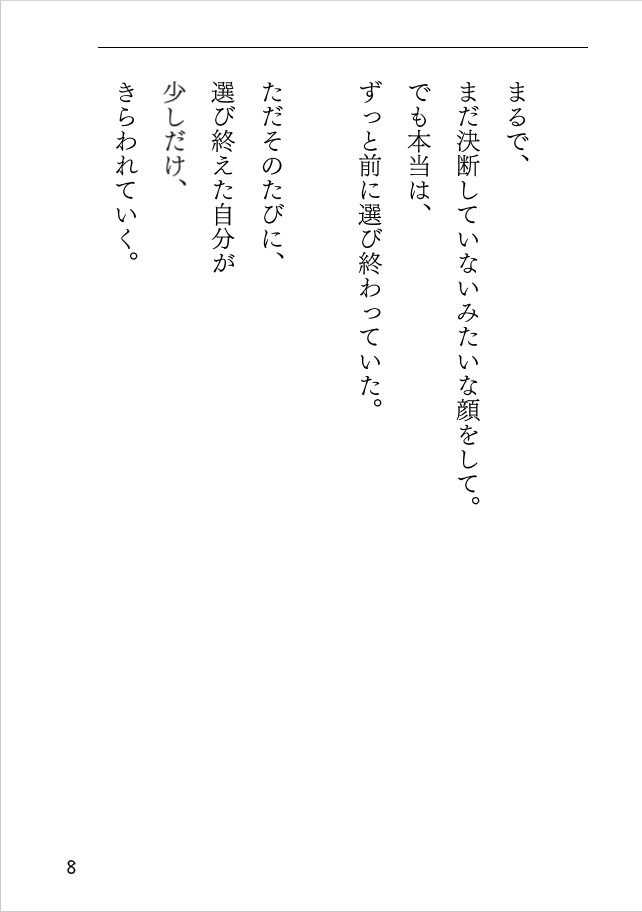 まるで、
まだ決断していないみたいな顔をして。
でも本当は、
ずっと前に選び終わっていた。
ただそのたびに、
選び終えた自分が
少しだけ、
きらわれていく。
8